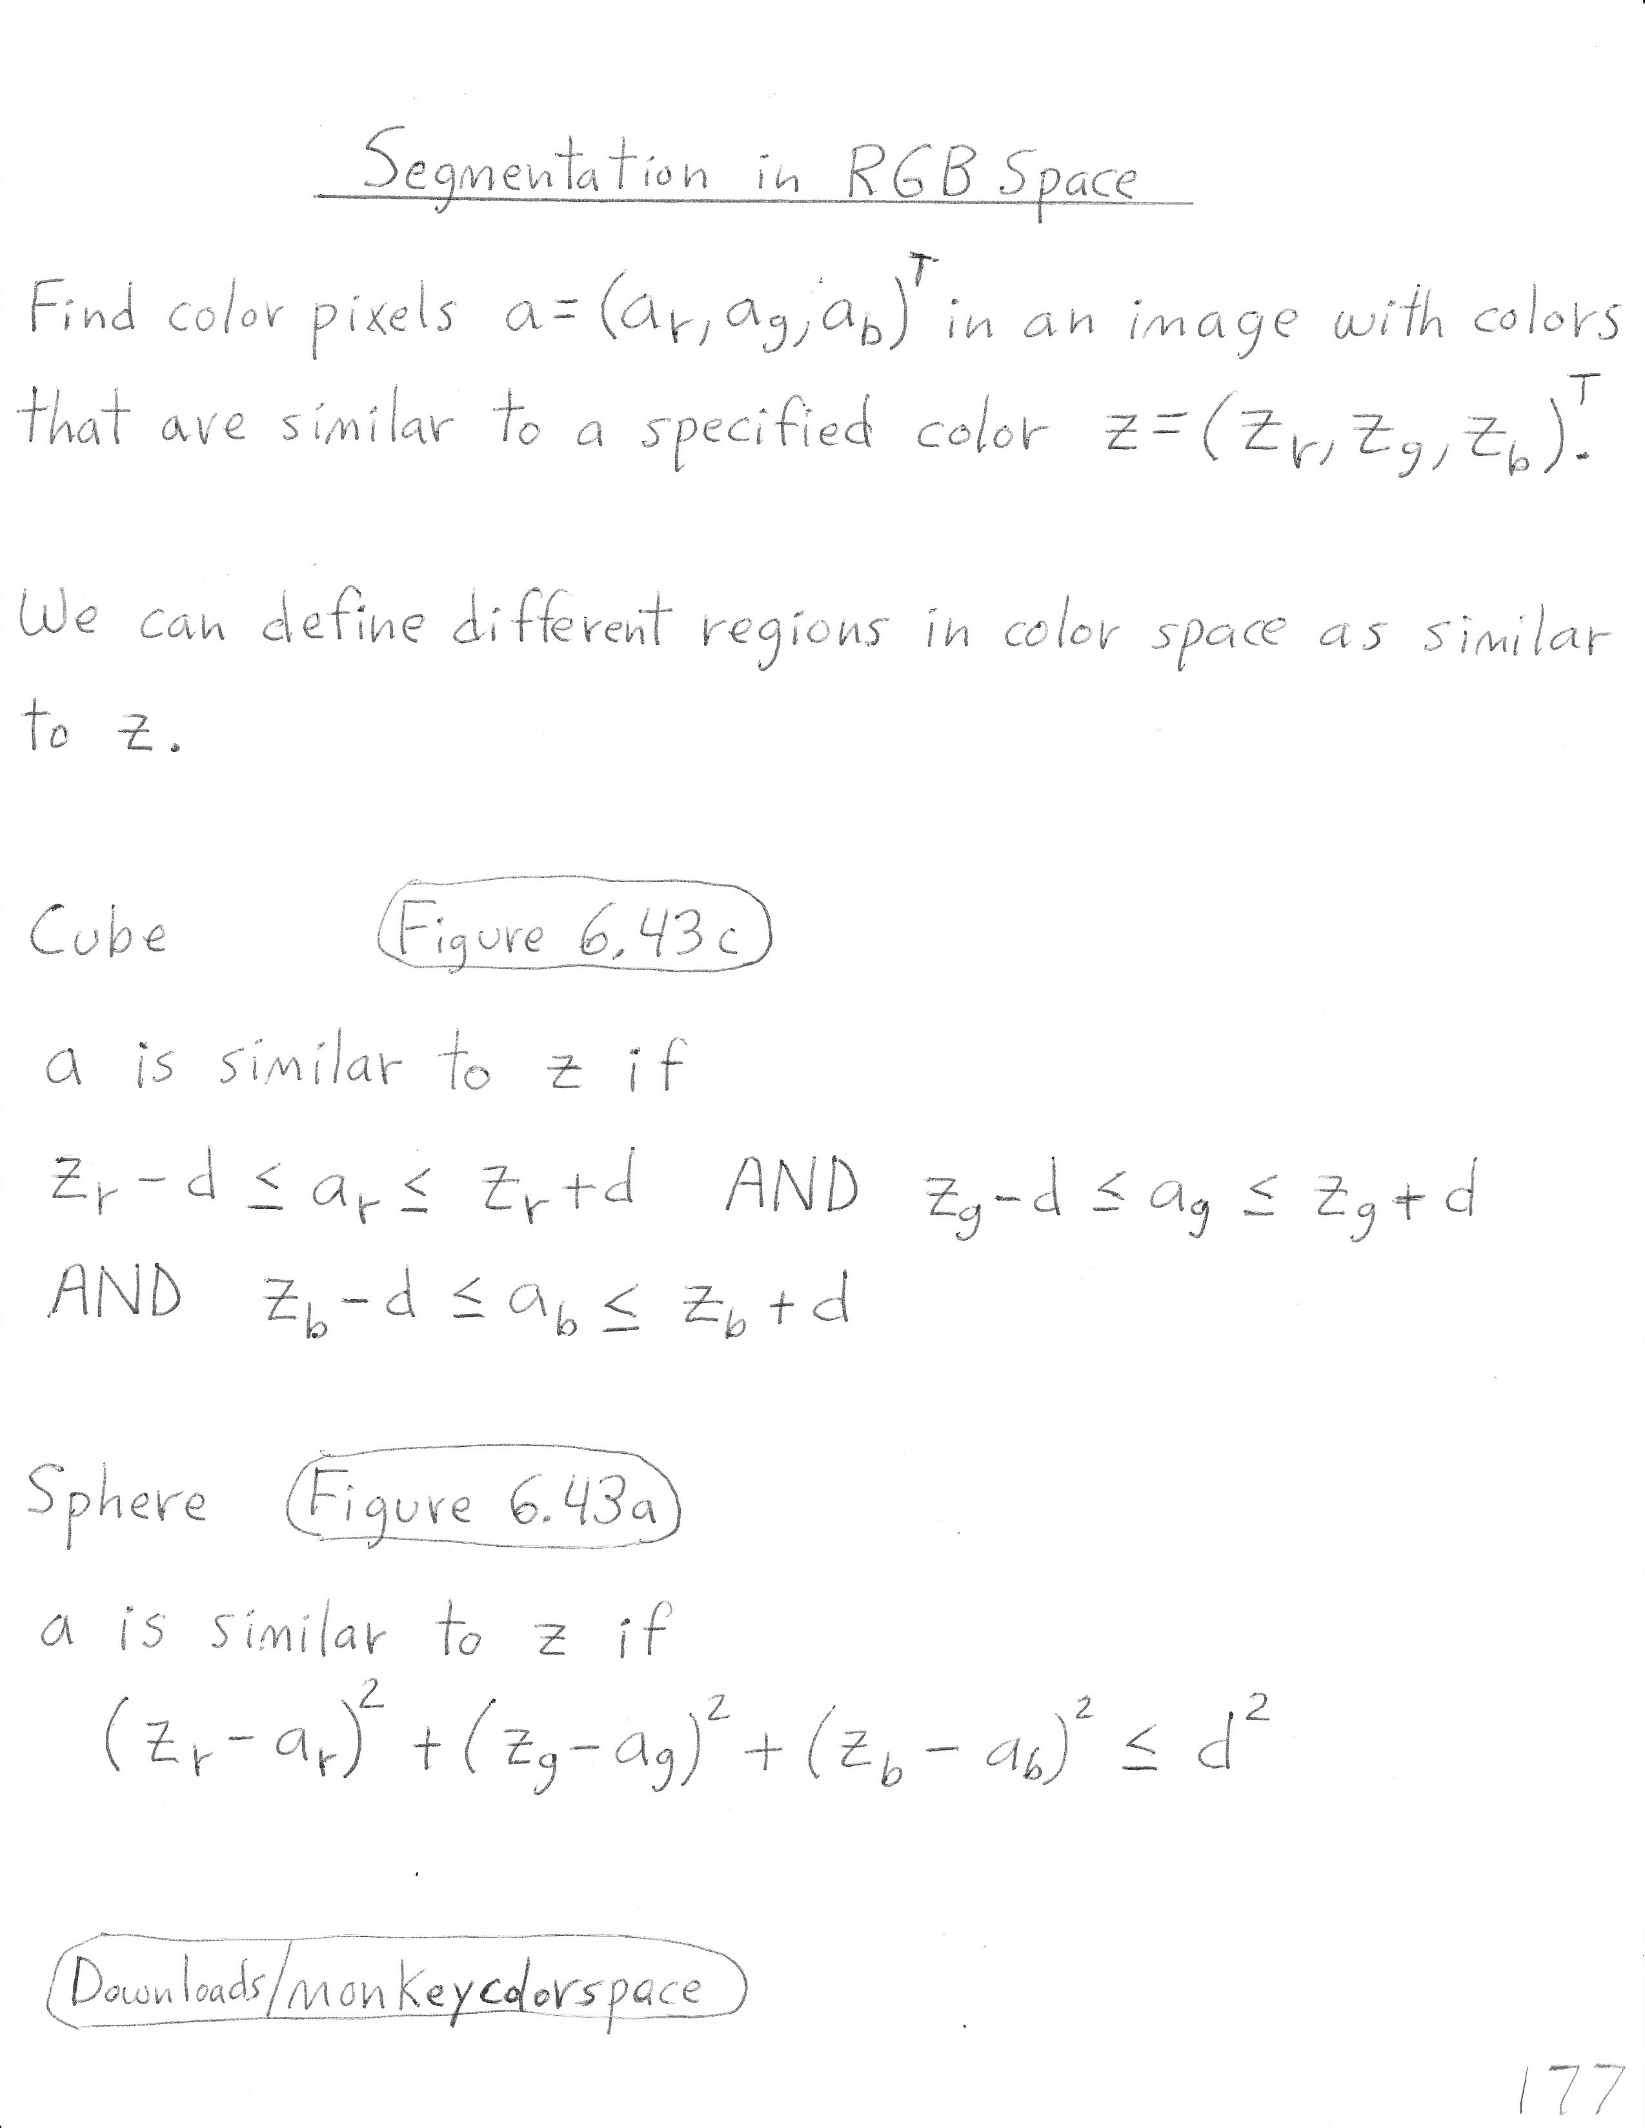 Segmentation in RGB Space
Find color pixels a = (a_r, a_g, a_b)^T in an image with colors
that are similar to a specified color z = (z_r, z_g, z_b)^T.
We can define different regions in color space as similar
to z.
Cube Figure 6.43c
a is similar to z if
z_r - d ≤ a_r ≤ z_r + d AND z_g - d ≤ a_g ≤ z_g + d
AND z_b - d ≤ a_b ≤ z_b + d
Sphere Figure 6.43a
a is similar to z if
(z_r - a_r)^2 + (z_g - a_g)^2 + (z_b - a_b)^2 ≤ d^2
Downloads/monkeycolorspace
177